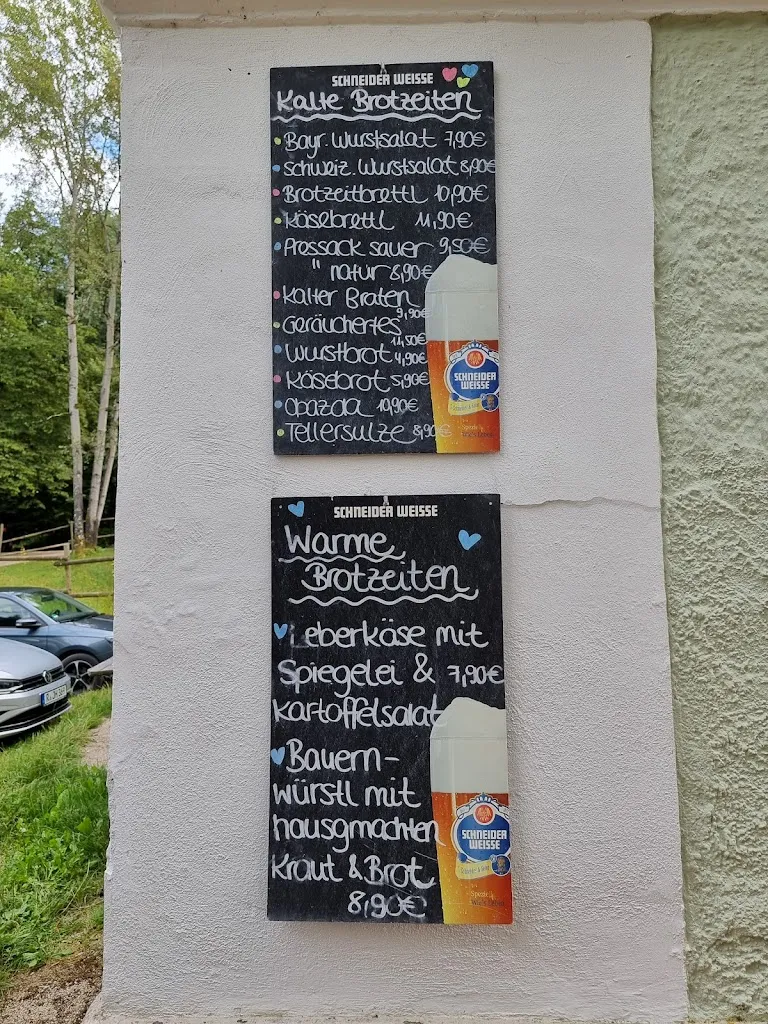 SCHNEIDER WEISSE
Kalte Brotzeiten
Bayr. Wurstsalat 7,90€
Schweiz. Wurstsalat 8,90€
Brotzeitbrettl 10,90€
Käsebrettl 11,90€
Pressack sauer 9,50€
" natur 8,90€
Kalter Braten
9,90€
Geräuchertes
11,50€
Wurstbrot 4,90€
Käsebrot 5,90€
Obazda 10,90€
Tellersulze 8,90€
SCHNEIDER
WEISSE
SCHNEIDER WEISSE
Warme
Brotzeiten
Leberkäse mit
Spiegelei & 7,90€
Kartoffelsalat
Bauern-
würstl mit
hausgmachten
Kraut & Brot
8,90€
SCHNEIDER
WEISSE